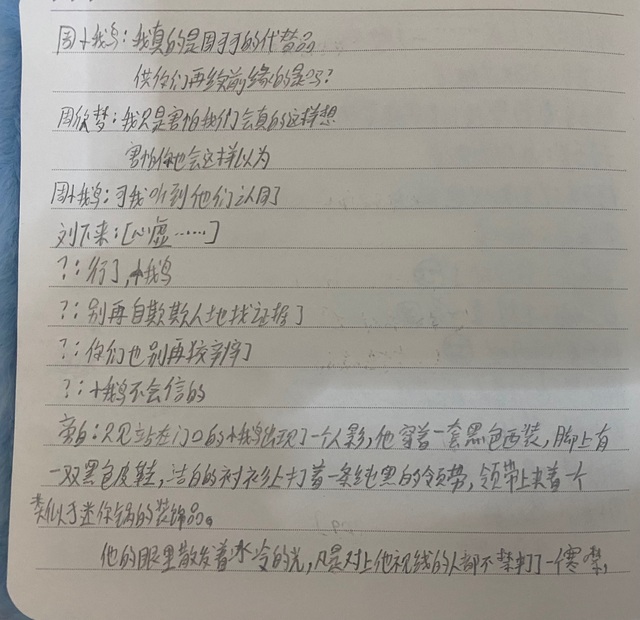 周小我鸟：我真的是周可可的代替品
供你们再续前缘的是吗？
周欣梦：我只是害怕我们会真的这样想
害怕你也会这样以为
周小鹅：可我听到他们认同了
刘下来：[心虚……]
？：行了，小鹅
？：别再自欺欺人地找证据了
？：你们也别再狡辩了
？：小鹅不会信的
旁白：只见站在门口的小鹅出现了一个人影，他穿着一套黑色西装，脚上有
一双黑色皮鞋，洁白的衬衫上打着一条纯黑的领带，领带上夹着一个
类似于迷你锅的装饰品。
他的眼里散发着冰冷的光，凡是对上他视线的人都不禁打了一个寒噤，